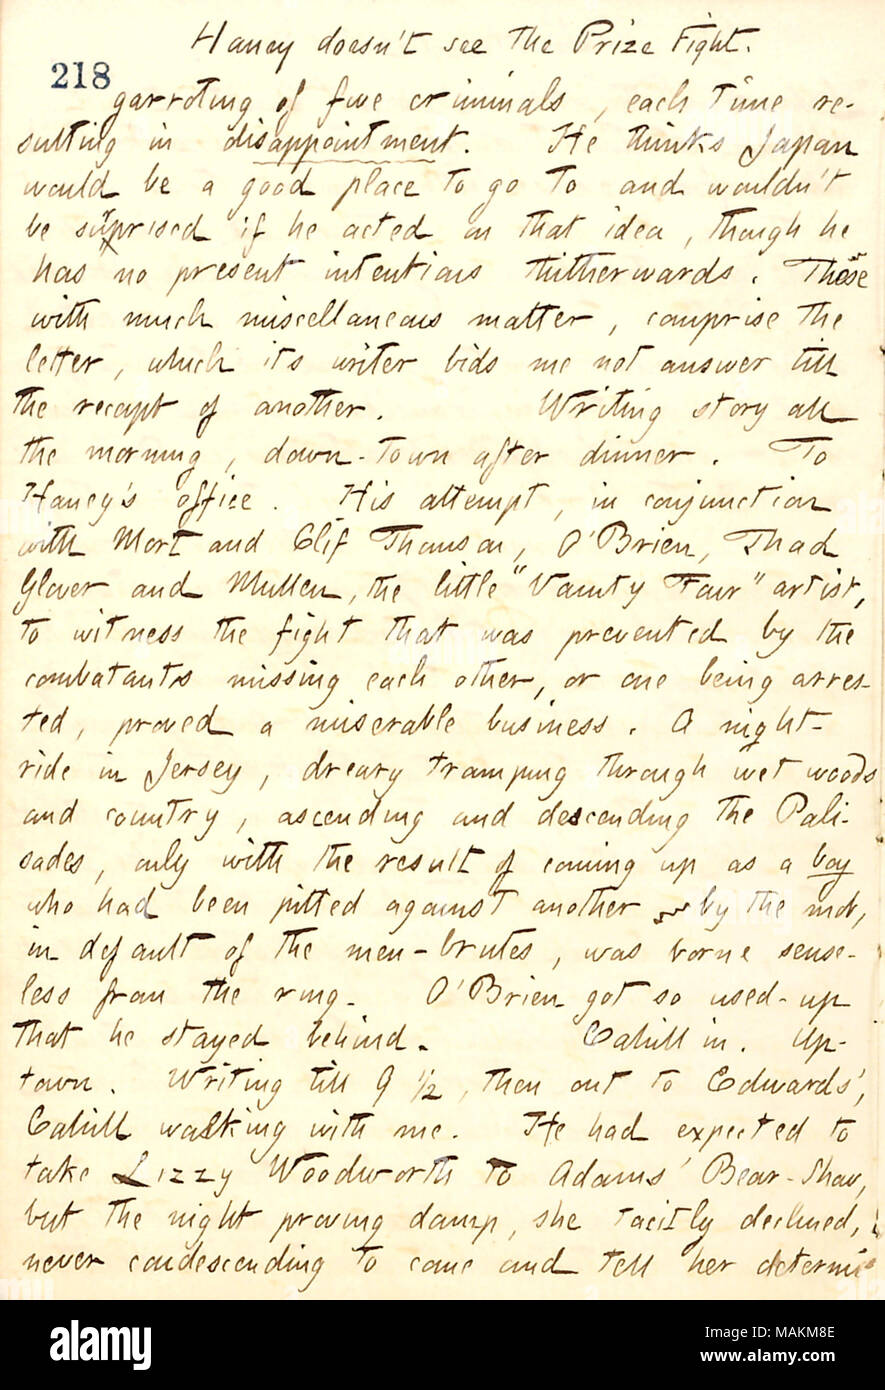 Haney doesn't see the Prize Fight.
218
garroting of five criminals, each time re-
sulting in disappointment. He thinks Japan
would be a good place to go to and wouldn't
be surprised if he acted on that idea, though he
has no present intentions thitherwards. These
with much miscellaneous matter, comprise the
letter, which its writer bids me not answer till
the receipt of another. Writing story all
the morning, down-town after dinner. To
Haney's office. His attempt, in conjunction
with Mort and Clif Thomson, O'Brien, Thad
Glover and Mullen, the little "Vanity Fair" artist,
to witness the fight that was prevented by the
combatants missing each other, or one being arres-
ted, proved a miserable business. A night-
ride in Jersey, dreary tramping through wet woods
and country, ascending and descending the Pali-
sades, only with the result of coming up as a boy
who had been pitted against another by the mob,
in default of the men-brutes, was borne sense-
less from the ring. O'Brien got so used-up
that he stayed behind. Cahill in. Up-
town. Writing till 9 1/2, then out to Edwards',
Cahill walking with me. He had expected to
take Lizzy Woodworth to Adams' Bear-Show,
but the night proving damp, she tacitly declined,
never condescending to come and tell her determi
alamy
Image ID: MAKM8E
www.alamy.com